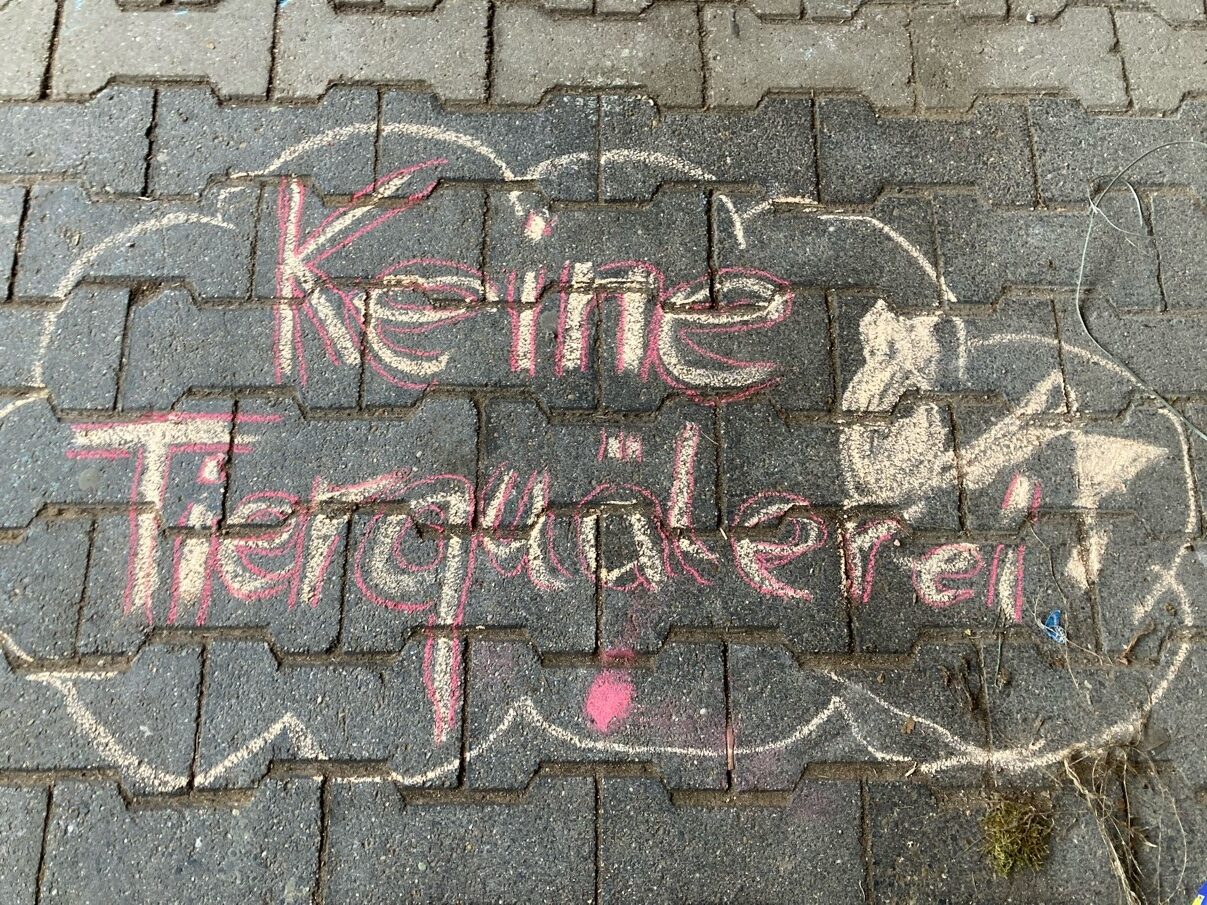 Keine
Tierquälerei